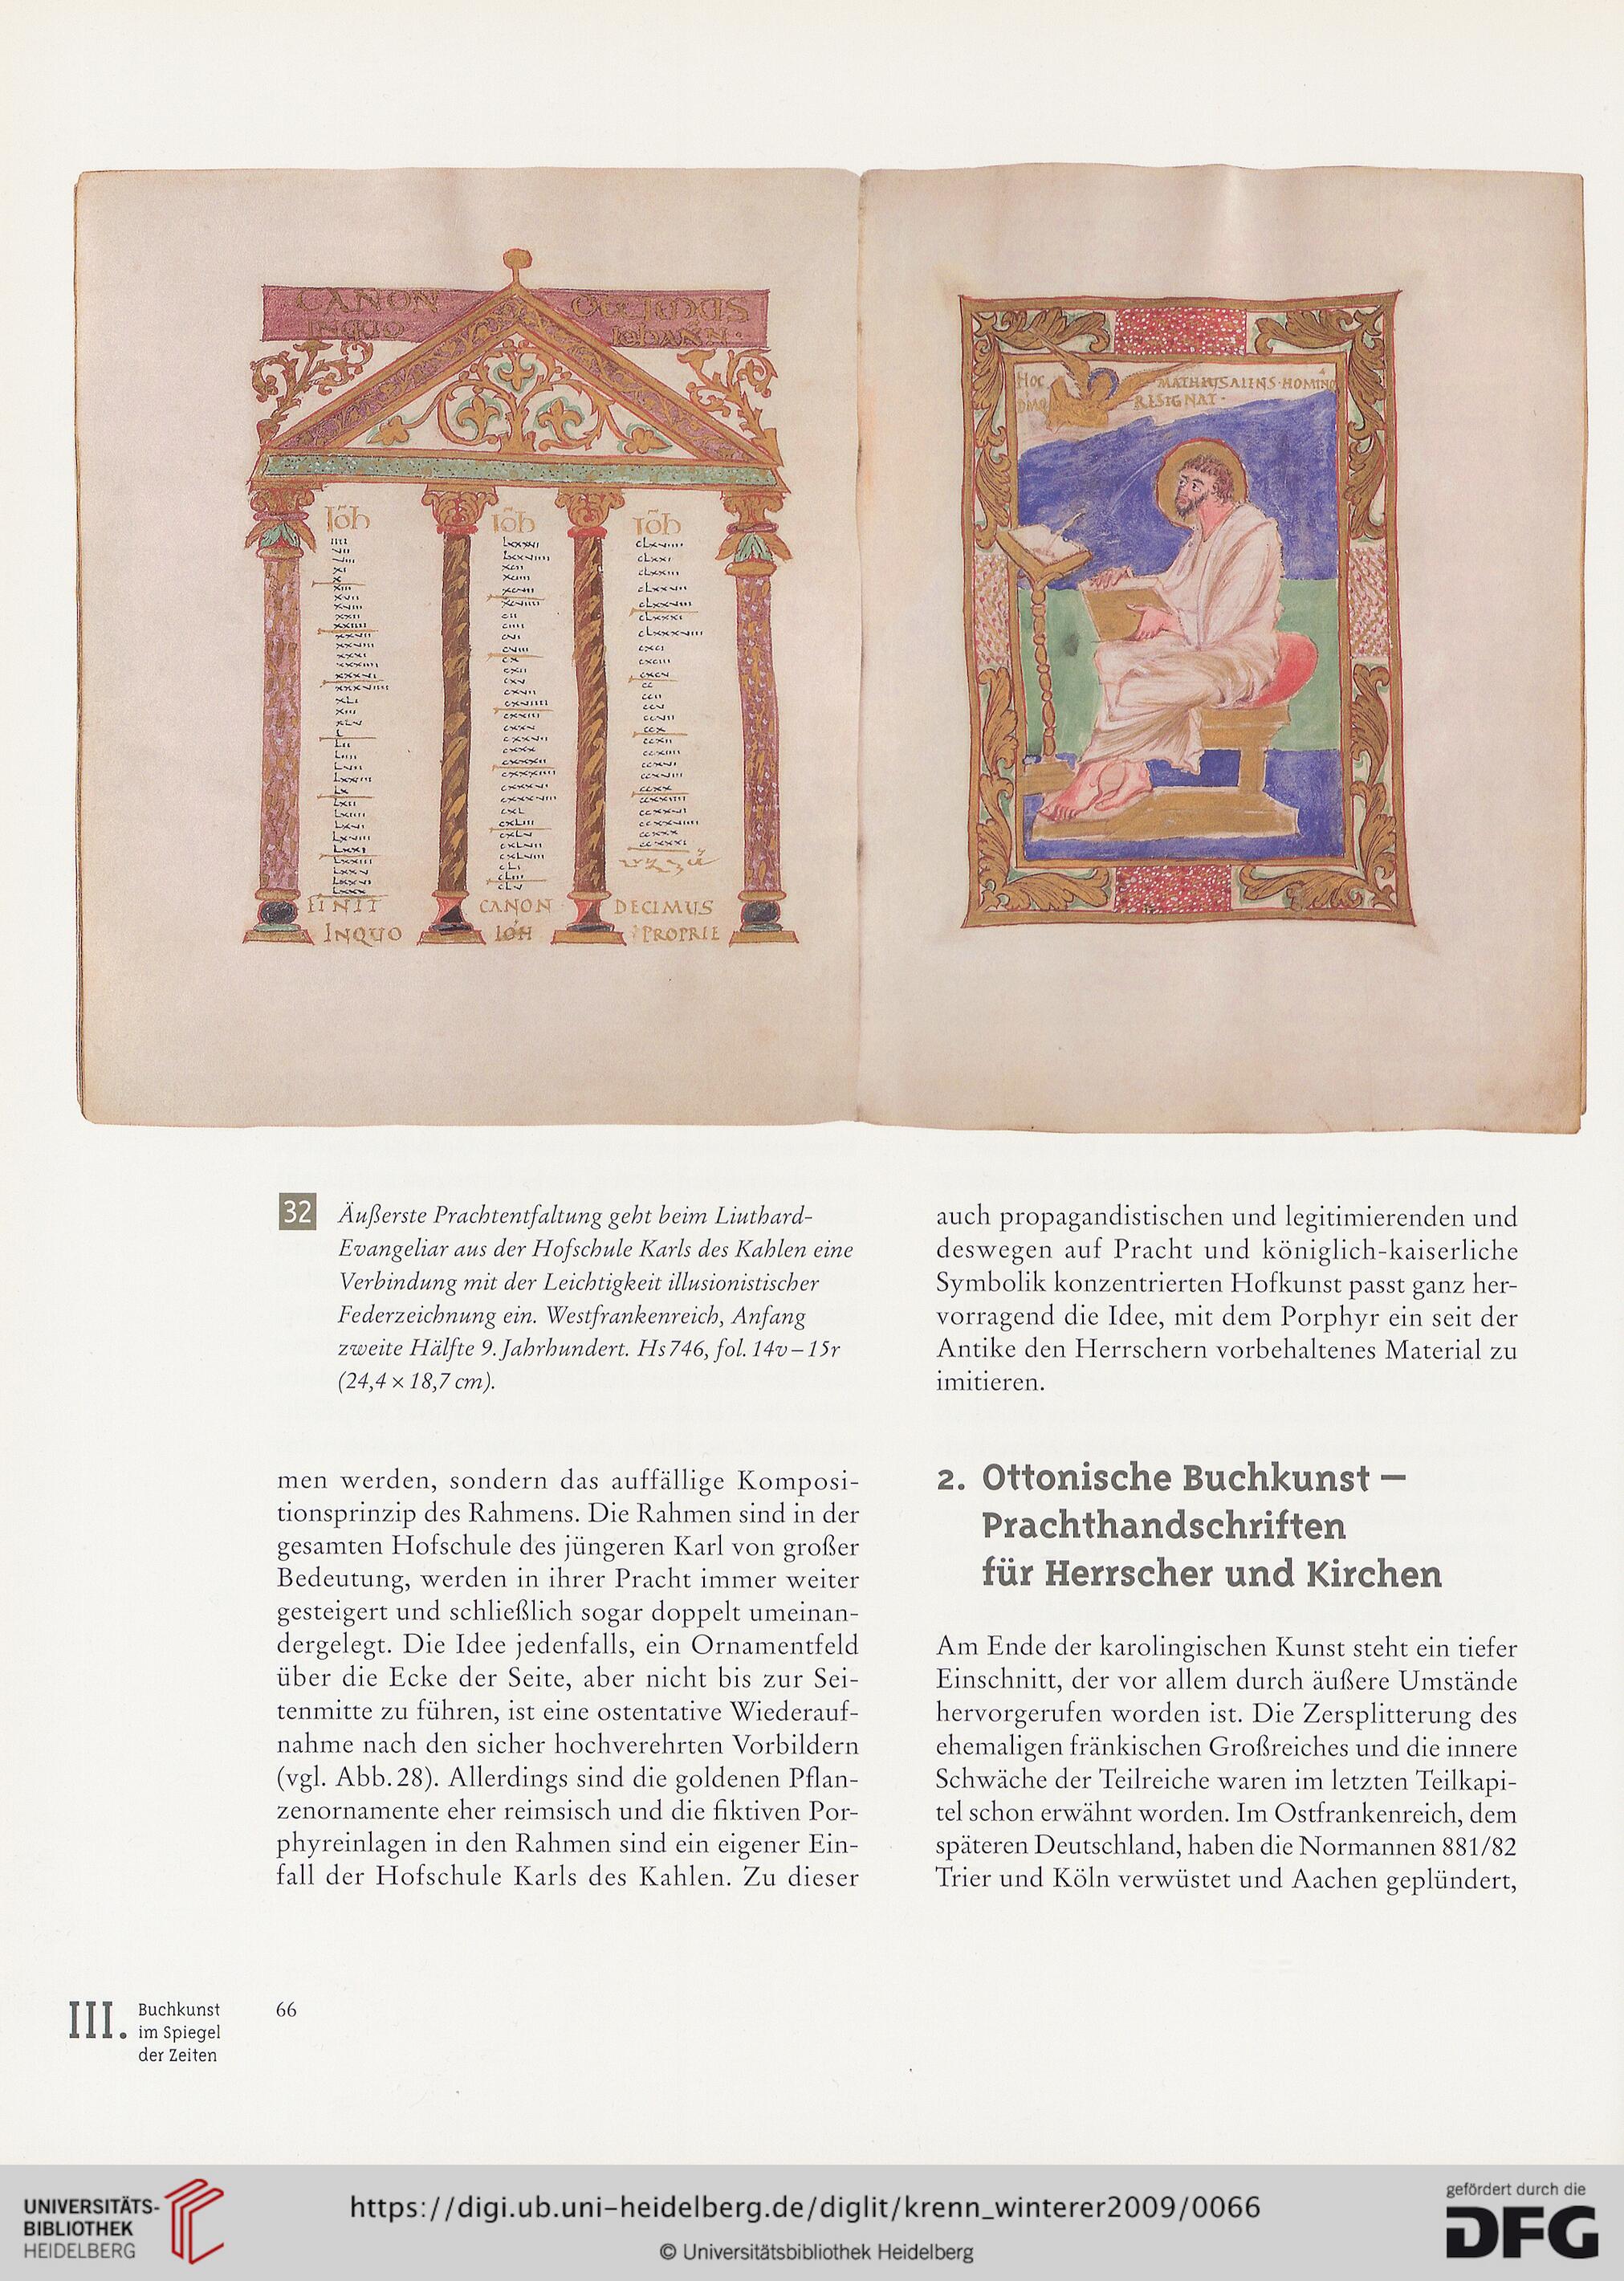 CANON
INQUO
DECIMUS
IOHANN·
IOH
IOH
IOH
FINIT
CANON
DECIMUS
INQUO
IOH
PROPRIE
HOC
MATHEUS AGENS HOMINE
RESIGNAT·
32
Äußerste Prachtentfaltung geht beim Liuthard-
Evangeliar aus der Hofschule Karls des Kahlen eine
Verbindung mit der Leichtigkeit illusionistischer
Federzeichnung ein. Westfrankenreich, Anfang
zweite Hälfte 9. Jahrhundert. Hs 746, fol. 14v – 15r
(24,4 × 18,7 cm).
men werden, sondern das auffällige Komposi-
tionsprinzip des Rahmens. Die Rahmen sind in der
gesamten Hofschule des jüngeren Karl von großer
Bedeutung, werden in ihrer Pracht immer weiter
gesteigert und schließlich sogar doppelt umeinan-
dergelegt. Die Idee jedenfalls, ein Ornamentfeld
über die Ecke der Seite, aber nicht bis zur Sei-
tenmitte zu führen, ist eine ostentative Wiederauf-
nahme nach den sicher hochverehrten Vorbildern
(vgl. Abb. 28). Allerdings sind die goldenen Pflan-
zenornamente eher reimsisch und die fiktiven Por-
phyreinlagen in den Rahmen sind ein eigener Ein-
fall der Hofschule Karls des Kahlen. Zu dieser
auch propagandistischen und legitimierenden und
deswegen auf Pracht und königlich-kaiserliche
Symbolik konzentrierten Hofkunst passt ganz her-
vorragend die Idee, mit dem Porphyr ein seit der
Antike den Herrschern vorbehaltenes Material zu
imitieren.
2. Ottonische Buchkunst —
Prachthandschriften
für Herrscher und Kirchen
Am Ende der karolingischen Kunst steht ein tiefer
Einschnitt, der vor allem durch äußere Umstände
hervorgerufen worden ist. Die Zersplitterung des
ehemaligen fränkischen Großreiches und die innere
Schwäche der Teilreiche waren im letzten Teilkapi-
tel schon erwähnt worden. Im Ostfrankenreich, dem
späteren Deutschland, haben die Normannen 881/82
Trier und Köln verwüstet und Aachen geplündert,
III.
Buchkunst
im Spiegel
der Zeiten
66
UNIVERSITÄTS-
BIBLIOTHEK
HEIDELBERG
https://digi.ub.uni-heidelberg.de/diglit/krenn_winterer2009/0066
© Universitätsbibliothek Heidelberg
gefördert durch die
DFG